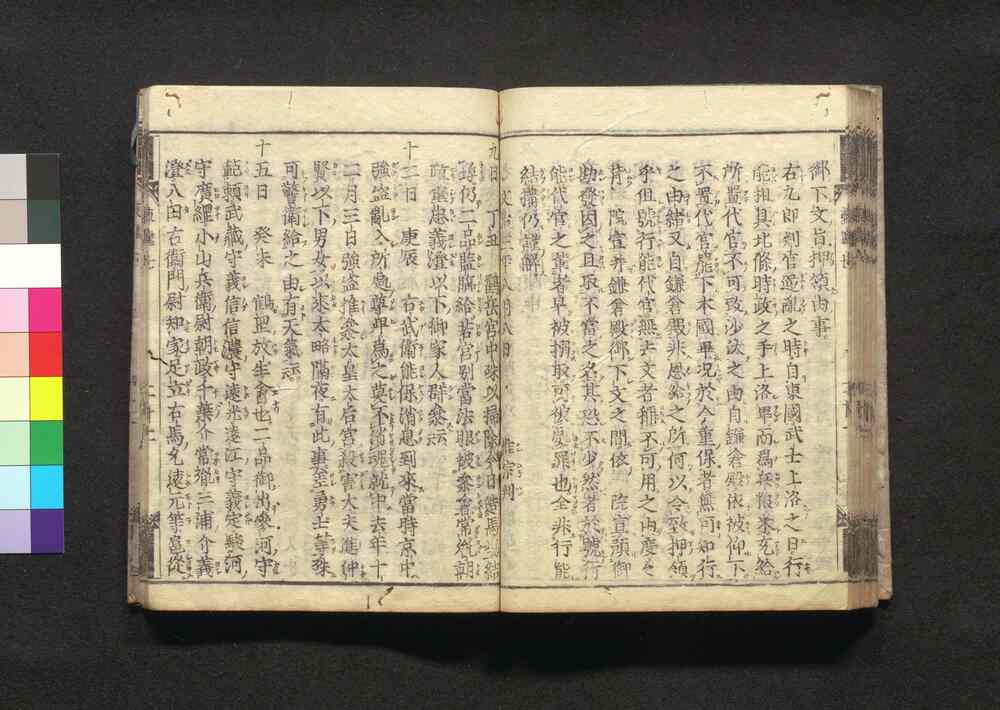 御下文旨押領由事
右九郎判官逆亂之時自東國武士上洛之日行
能相具北條時政之手上洛畢而爲兵粮米宛給
所置代官不可致沙汰之由自鎌倉殿依被仰下
不置代官罷下本國畢况於令重保者無可知行
之由緒又自鎌倉殿非恩給之所何以令致押領
乎但號行能代官無去文者稱不可用之由度々
背 院宣并鎌倉殿御下文之間依 院宣預御
勘發因之且取不當之名其恐不少然者於號行
能代官之輩者早被搦取可被處罪也全非行能
結搆仍謹解
文治三年八月八日 惟宗判
九日 丁丑 鶴岳宮中殊以掃除今日造馬塲結
埒仍二品監臨給若宮別當法眼被參會常胤朝
政重忠義澄以下御家人群參云々
十二日 庚辰 右武衛能保消息到來當時京中
強盜亂入所處尊卑爲之莫不消魂就中去年十
二月三日強盜推參太皇太后宮殺害大夫進仲
賢以下男女以來本略隔夜有此事差勇士等殊
可警衛給之由有天氣云々
十五日 癸未 鶴岳放生會也二品御出參河守
範頼武藏守義信信濃守遠光遠江守義定駿河
守廣綱小山兵衛尉朝政千葉介常胤三浦介義
澄八田右衛門尉知家足立右馬允遠元等扈從